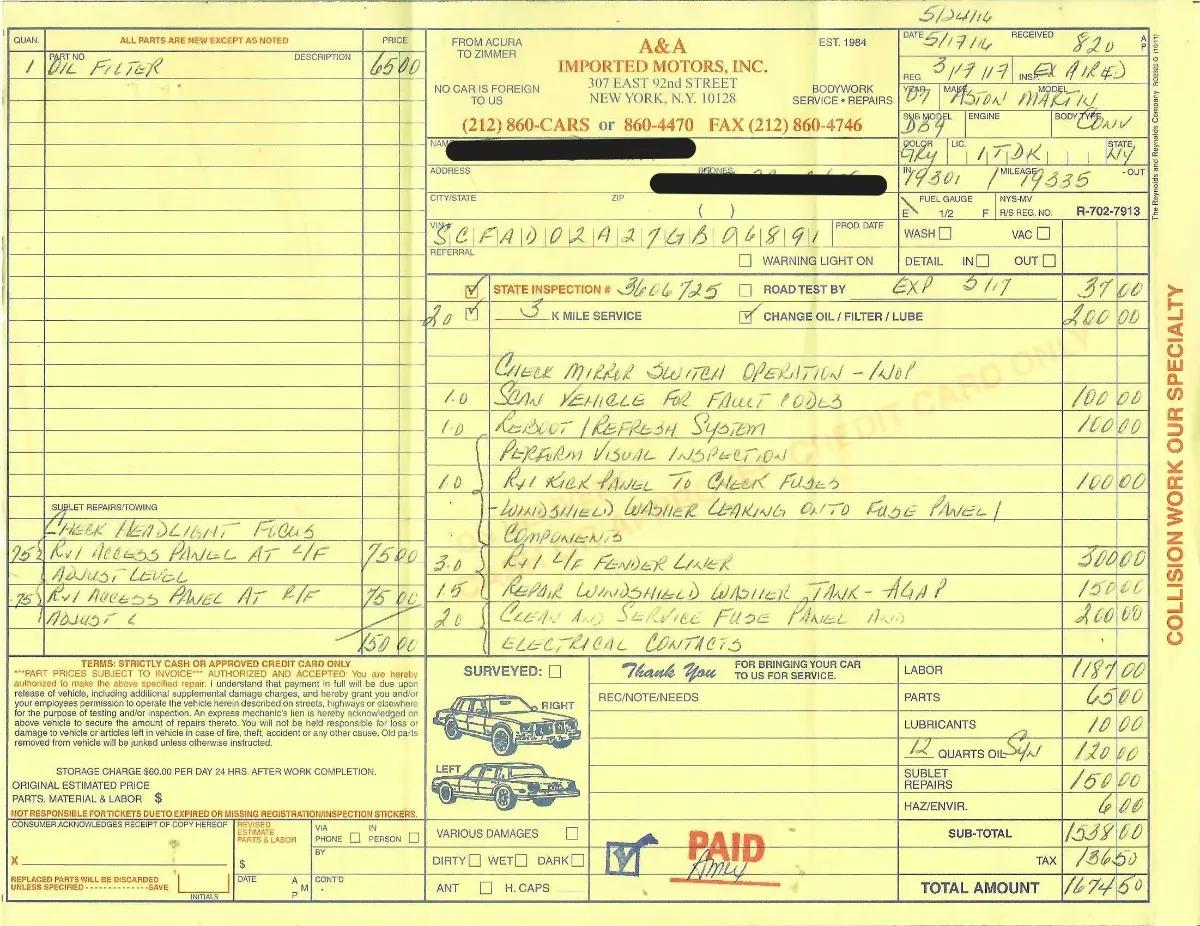 5/24/16
QUAN. ALL PARTS ARE NEW EXCEPT AS NOTED PRICE
PART NO DESCRIPTION
1 OIL FILTER 65 00
SUBLET REPAIRS/TOWING
CHECK HEADLIGHT FOCUS
.75 R+I ACCESS PANEL AT L/F 75 00
ADJUST LEVEL
.75 R+I ACCESS PANEL AT R/F 75 00
ADJUST L
150.00
TERMS: STRICTLY CASH OR APPROVED CREDIT CARD ONLY
***PART PRICES SUBJECT TO INVOICE*** AUTHORIZED AND ACCEPTED: You are hereby
authorized to make the above specified repair. I understand that payment in full will be due upon
release of vehicle, including additional supplemental damage charges, and hereby grant you and/or
your employees permission to operate the vehicle herein described on streets, highways or elsewhere
for the purpose of testing and/or inspection. An express mechanic's lien is hereby acknowledged on
above vehicle to secure the amount of repairs thereto. You will not be held responsible for loss or
damage to vehicle or articles left in vehicle in case of fire, theft, accident or any other cause. Old parts
removed from vehicle will be junked unless otherwise instructed.
STORAGE CHARGE $60.00 PER DAY 24 HRS. AFTER WORK COMPLETION.
ORIGINAL ESTIMATED PRICE
PARTS. MATERIAL & LABOR $
NOT RESPONSIBLE FOR TICKETS DUE TO EXPIRED OR MISSING REGISTRATION/INSPECTION STICKERS.
CONSUMER ACKNOWLEDGES RECEIPT OF COPY HEREOF
X
REPLACED PARTS WILL BE DISCARDED
UNLESS SPECIFIED - - - - - - - - - - - - - - -SAVE
INITIALS
REVISED
ESTIMATE
PARTS & LABOR
$
DATE A M P
VIA PHONE IN PERSON
BY
CONT'D
FROM ACURA
TO ZIMMER
NO CAR IS FOREIGN
TO US
A&A
IMPORTED MOTORS, INC.
307 EAST 92nd STREET
NEW YORK, N.Y. 10128
EST. 1984
BODYWORK
SERVICE • REPAIRS
(212) 860-CARS or 860-4470 FAX (212) 860-4746
NAME
ADDRESS PHONES
CITY/STATE ZIP
( )
VIN# SCFAD02A27GB06891 PROD. DATE
REFERRAL
WARNING LIGHT ON
DATE 5/17/16 RECEIVED 820 A P
REG 3/17/17 INSP. EXPIRED
YEAR 07 MAKE ASTON MARTIN MODEL
SUB MODEL DB9 ENGINE BODY TYPE CONV
COLOR GRY LIC. 1TDK STATE NY
IN 19301 / MILEAGE 19335 - OUT
FUEL GAUGE
E 1/2 F
NYS-MV
R/S REG. NO. R-702-7913
WASH VAC
DETAIL IN OUT
STATE INSPECTION # 3606725 ROAD TEST BY EXP 5/17 37 00
2.0 3 K MILE SERVICE CHANGE OIL / FILTER / LUBE 200 00
CHECK MIRROR SWITCH OPERATION - INOP
1.0 SCAN VEHICLE FOR FAULT CODES 100 00
1.0 REBOOT / REFRESH SYSTEM 100 00
PERFORM VISUAL INSPECTION
1.0 R+I KICK PANEL TO CHECK FUSES 100 00
- WINDSHIELD WASHER LEAKING ONTO FUSE PANEL /
COMPONENTS
3.0 R+I L/F FENDER LINER 300 00
1.5 REPAIR WINDSHIELD WASHER TANK - AGAP 150 00
2.0 CLEAN AND SERVICE FUSE PANEL AND 200 00
ELECTRICAL CONTACTS
SURVEYED:
RIGHT
LEFT
VARIOUS DAMAGES
DIRTY WET DARK
ANT H. CAPS
Thank You FOR BRINGING YOUR CAR
TO US FOR SERVICE.
REC/NOTE/NEEDS
PAID
Amex
LABOR 1187 00
PARTS 65 00
LUBRICANTS 10 00
12 QUARTS OIL SYN 120 00
SUBLET
REPAIRS 150 00
HAZ/ENVIR. 6 00
SUB-TOTAL 1538 00
TAX 136 50
TOTAL AMOUNT 1674 50
COLLISION WORK OUR SPECIALTY
The Reynolds and Reynolds Company